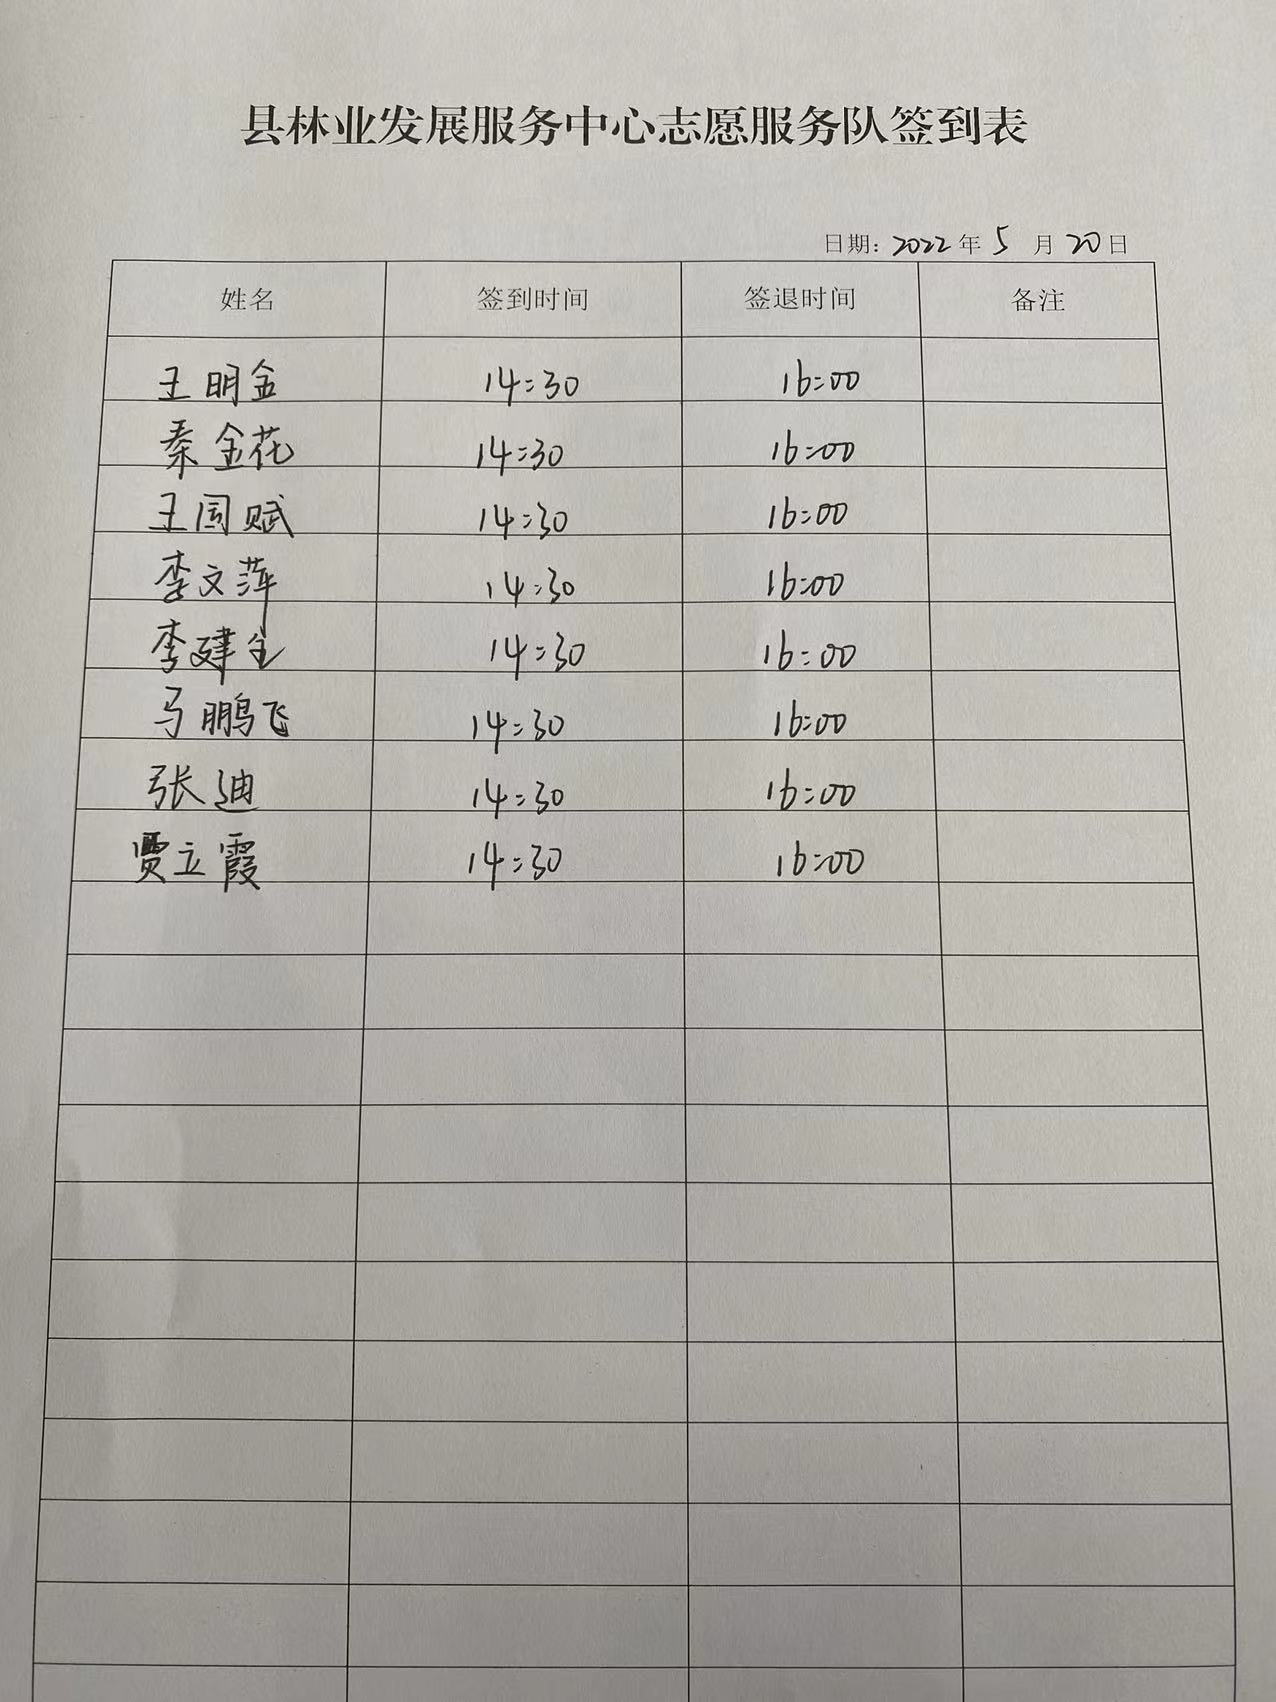 县林业发展服务中心志愿服务队签到表
日期: 2022 年 5 月 20 日
姓名 签到时间 签退时间 备注
王明金 14:30 16:00
秦金花 14:30 16:00
王国赋 14:30 16:00
李文萍 14:30 16:00
李建全 14:30 16:00
马鹏飞 14:30 16:00
张迪 14:30 16:00
贾立霞 14:30 16:00